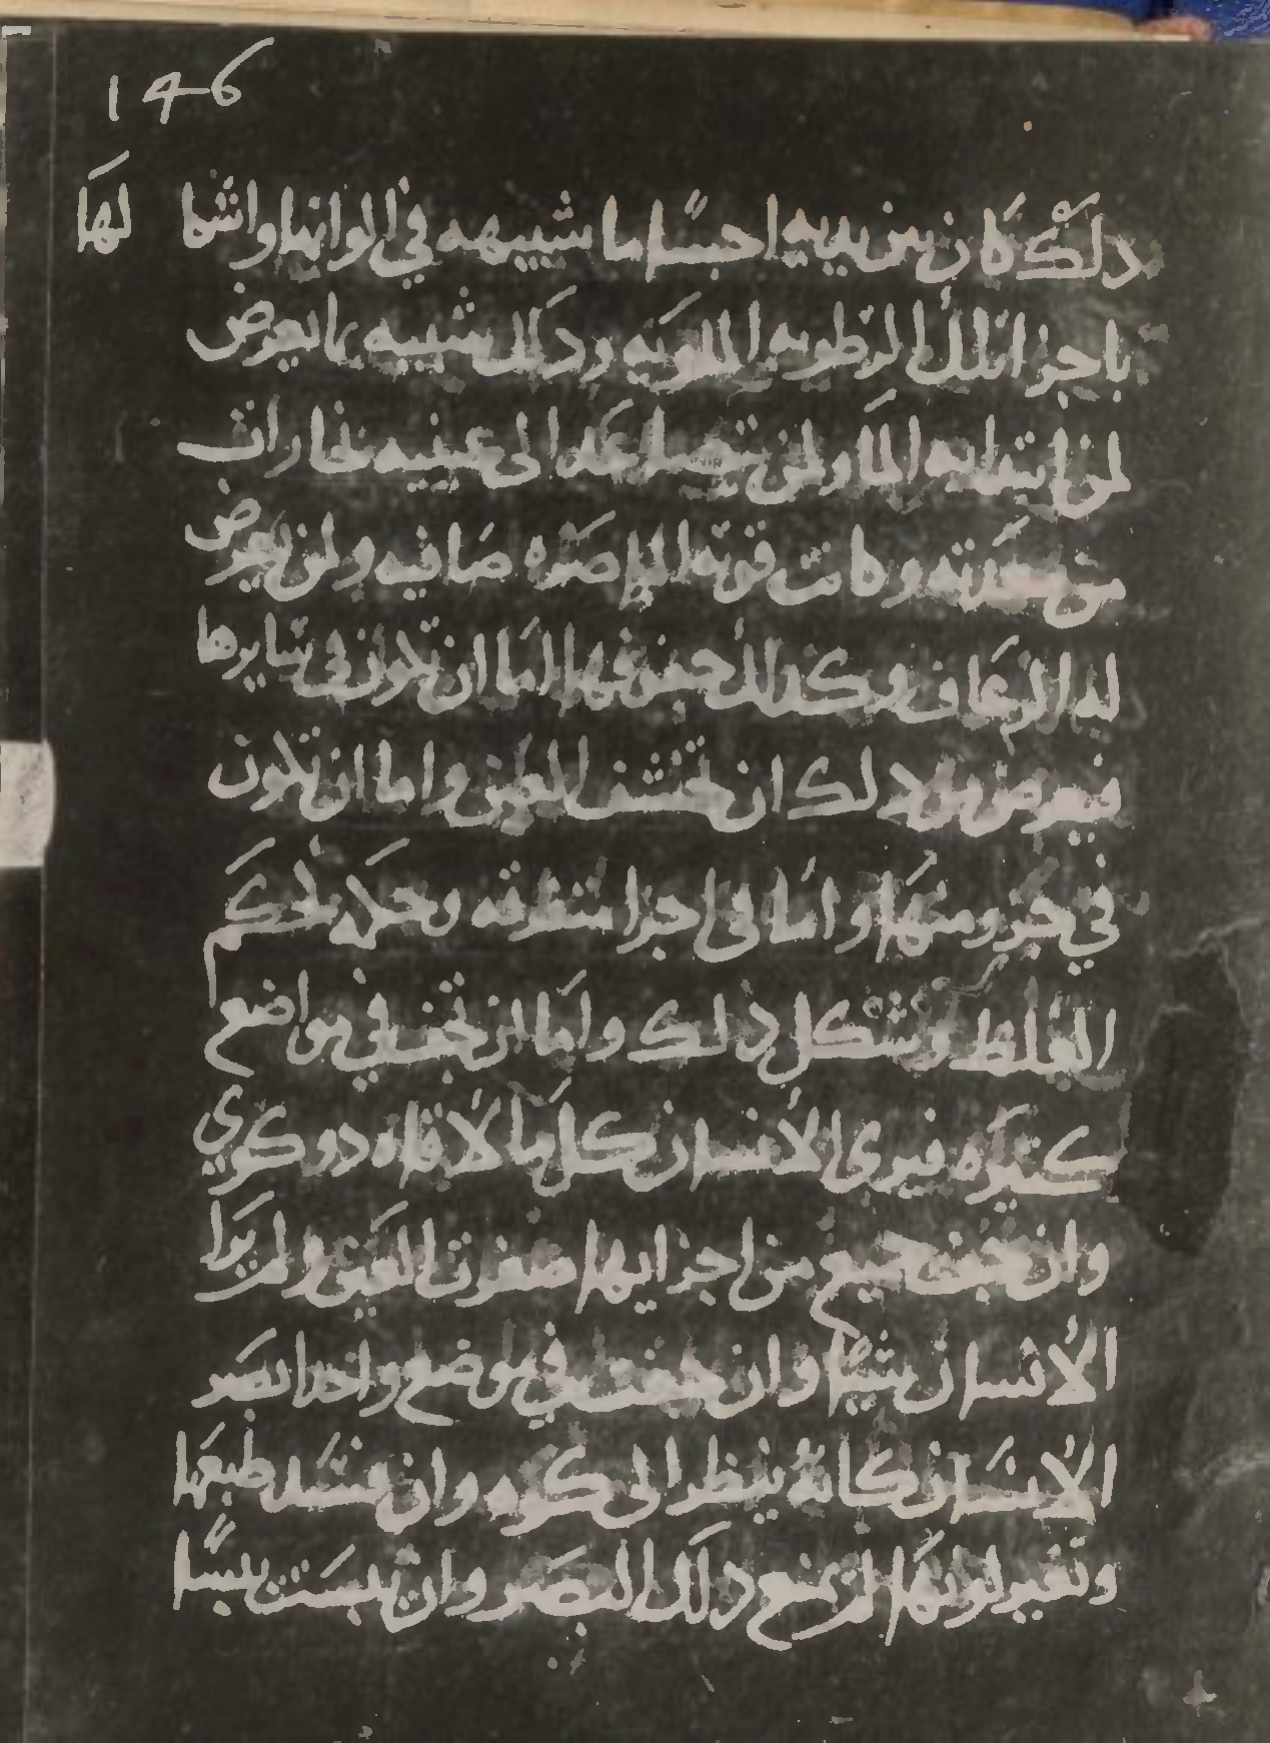 146
دلك كان بين يديه اجسًاما شبيهه في الوانها واشكا لها
باجزا تلك الرطوبه الملونه ودلك شبيه بما يعرض
لمن ابتدا به الما ولمن يتصاعد الى عينيه بخارات
من معدته وكانت قوته الباصره صافيه ولمن يعرض
له الرعاف وكدلك جفوفها اما ان تكون في سايرها
فيعرض من دلك ان تتشنف العين واما ان تكون
في جزو منها واما في اجزا متفرقه
الغلظ وشكل دلك واما ان تجف في مواضع
كتيره فيرى الانسان كل ما لاقاه دو كوي
وان جفت جميع من اجزايها صغرت العين ولم يرا
الانسان شيًا وان جفت في موضع واحد ابصر
الانسان كانه ينظر الى كوه وان فسد طبعها
وتغير لونها لم يمنع دلك البصر وان يبست يبسًا